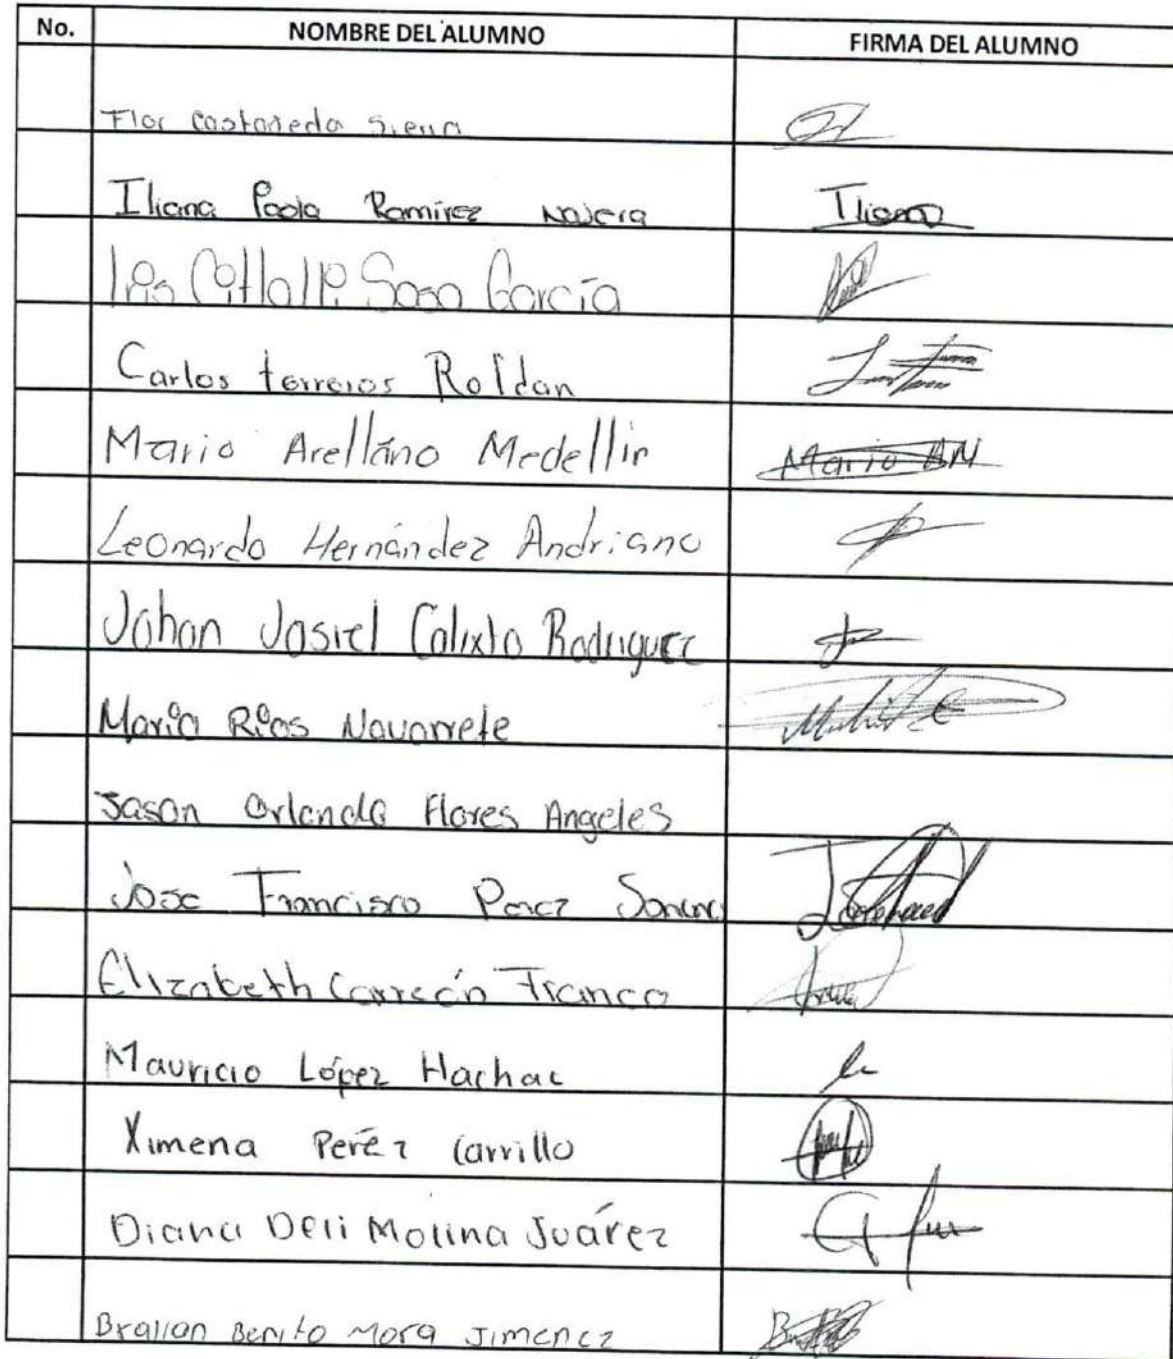 No. NOMBRE DEL ALUMNO FIRMA DEL ALUMNO
Flor Castañeda Sierra
Iliana Paola Ramírez Najera Iliana
Iris Citlalli Sosa García
Carlos terreros Roldan
Mario Arellano Medellin Mario AM
Leonardo Hernández Andriano
Johan Josiel Calixto Rodriguez
María Ríos Navarrete
Jason Orlando Flores Angeles
Jose Francisco Perez
Elizabeth Carreón Franco
Mauricio López Hachac
Ximena Peréz Carrillo
Diana Deli Molina Juárez
Brallan Benito Mora Jimenez